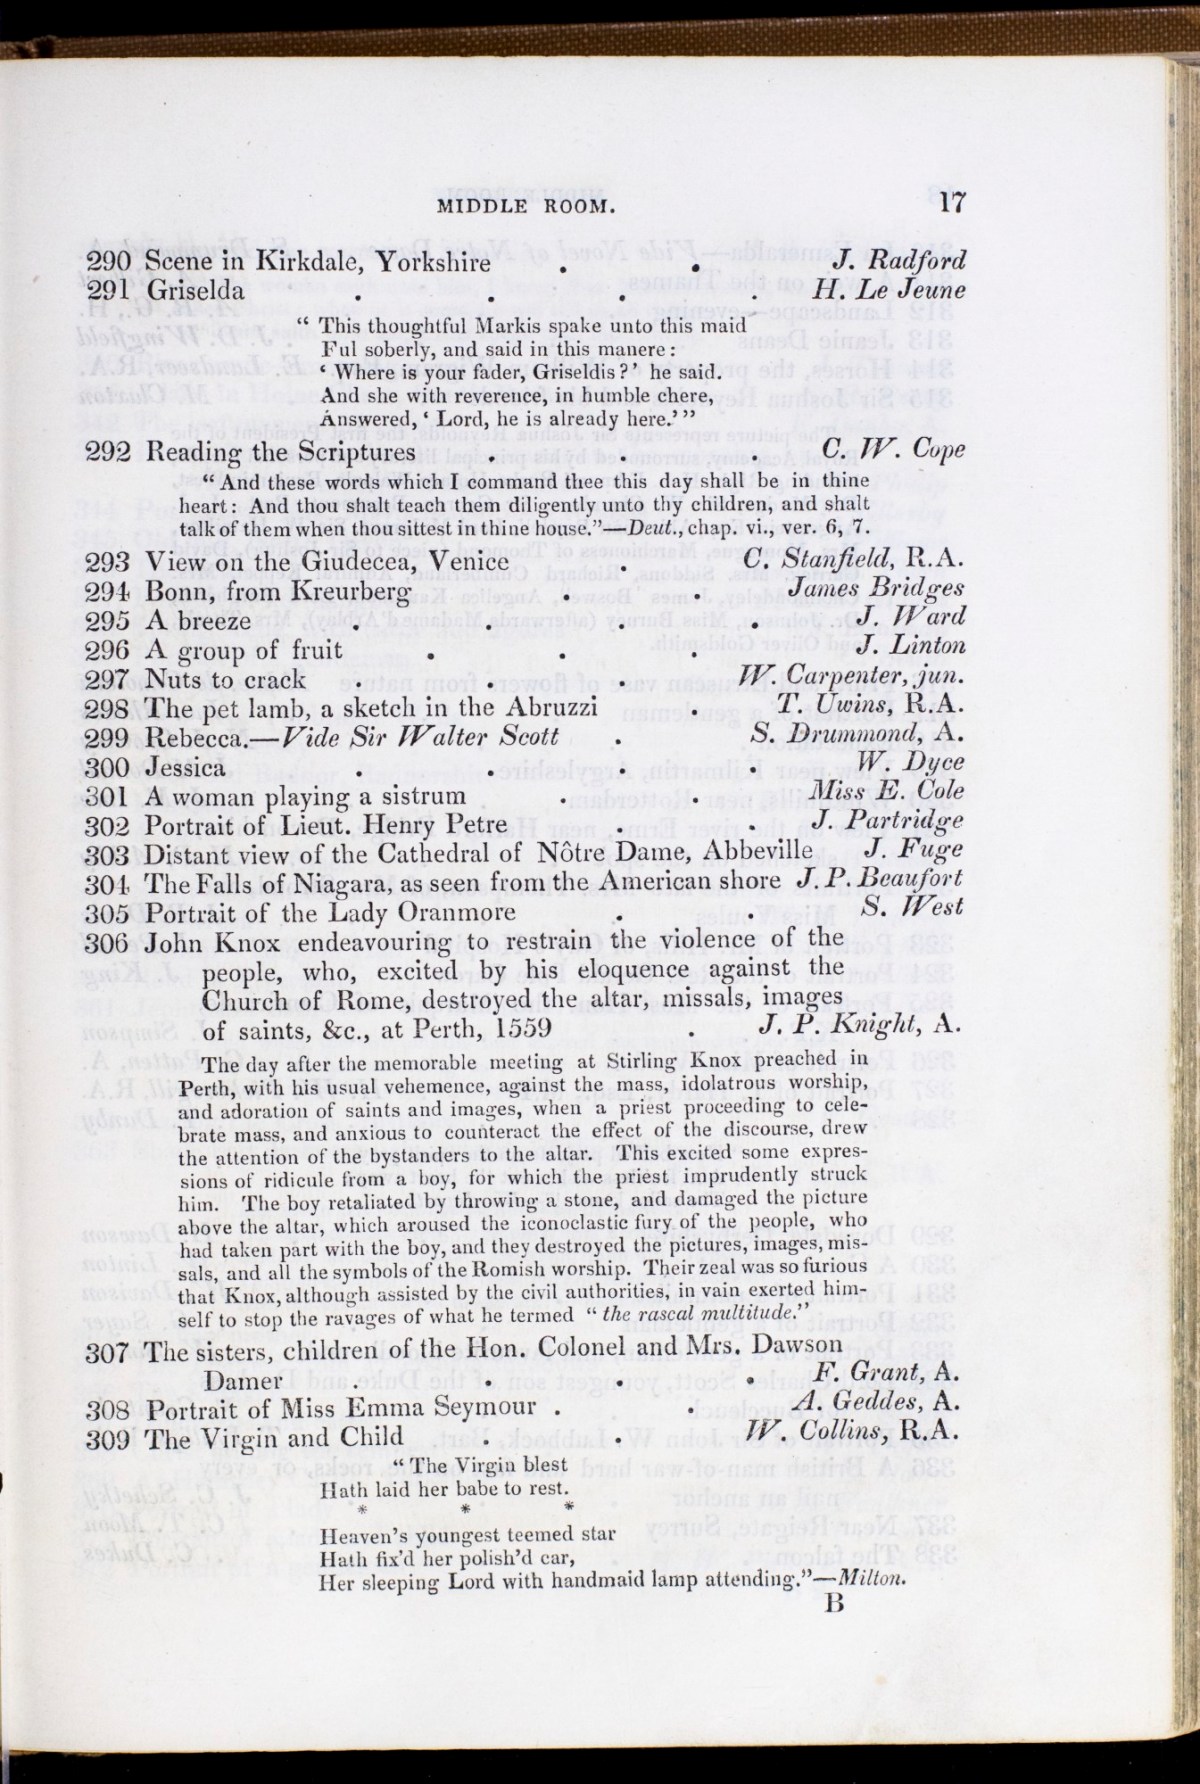 MIDDLE ROOM. 17
290 Scene in Kirkdale, Yorkshire . . J. Radford
291 Griselda . . . . H. Le Jeune
“ This thoughtful Markis spake unto this maid
Ful soberly, and said in this manere :
‘ Where is your fader, Griseldis ?’ he said.
And she with reverence, in humble chere,
Answered, ‘ Lord, he is already here.’ ”
292 Reading the Scriptures . . . C. W. Cope
“ And these words which I command thee this day shall be in thine
heart : And thou shalt teach them diligently unto thy children, and shalt
talk of them when thou sittest in thine house.”—Deut., chap. vi., ver. 6, 7.
293 View on the Giudecea, Venice . C. Stanfield, R.A.
294 Bonn, from Kreurberg . . James Bridges
295 A breeze . . . . J. Ward
296 A group of fruit . . . J. Linton
297 Nuts to crack . . . W. Carpenter, jun.
298 The pet lamb, a sketch in the Abruzzi . T. Uwins, R.A.
299 Rebecca.—Vide Sir Walter Scott . S. Drummond, A.
300 Jessica . . . . W. Dyce
301 A woman playing a sistrum . . Miss E. Cole
302 Portrait of Lieut. Henry Petre . . J. Partridge
303 Distant view of the Cathedral of Nôtre Dame, Abbeville J. Fuge
304 The Falls of Niagara, as seen from the American shore J. P. Beaufort
305 Portrait of the Lady Oranmore . . S. West
306 John Knox endeavouring to restrain the violence of the
people, who, excited by his eloquence against the
Church of Rome, destroyed the altar, missals, images
of saints, &c., at Perth, 1559 . J. P. Knight, A.
The day after the memorable meeting at Stirling Knox preached in
Perth, with his usual vehemence, against the mass, idolatrous worship,
and adoration of saints and images, when a priest proceeding to cele-
brate mass, and anxious to counteract the effect of the discourse, drew
the attention of the bystanders to the altar. This excited some expres-
sions of ridicule from a boy, for which the priest imprudently struck
him. The boy retaliated by throwing a stone, and damaged the picture
above the altar, which aroused the iconoclastic fury of the people, who
had taken part with the boy, and they destroyed the pictures, images, mis-
sals, and all the symbols of the Romish worship. Their zeal was so furious
that Knox, although assisted by the civil authorities, in vain exerted him-
self to stop the ravages of what he termed “ the rascal multitude.”
307 The sisters, children of the Hon. Colonel and Mrs. Dawson
Damer . . . . F. Grant, A.
308 Portrait of Miss Emma Seymour . . A. Geddes, A.
309 The Virgin and Child . . W. Collins, R.A.
“ The Virgin blest
Hath laid her babe to rest.
* * *
Heaven’s youngest teemed star
Hath fix’d her polish’d car,
Her sleeping Lord with handmaid lamp attending.”—Milton.
B